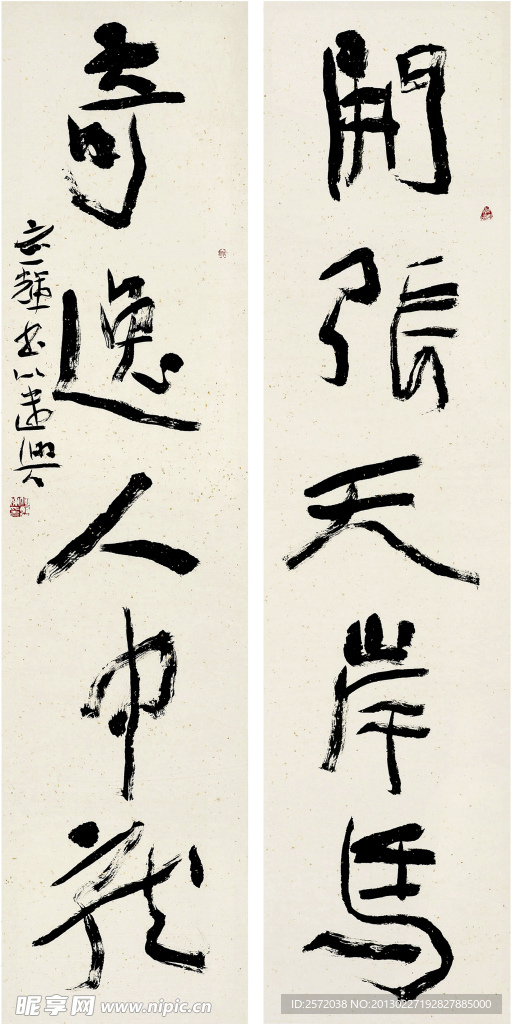 開張天岸馬
奇逸人中龍
輝書以遣興
昵享网 www.nipic.cn
ID:2572038 NO:20130227192827885000